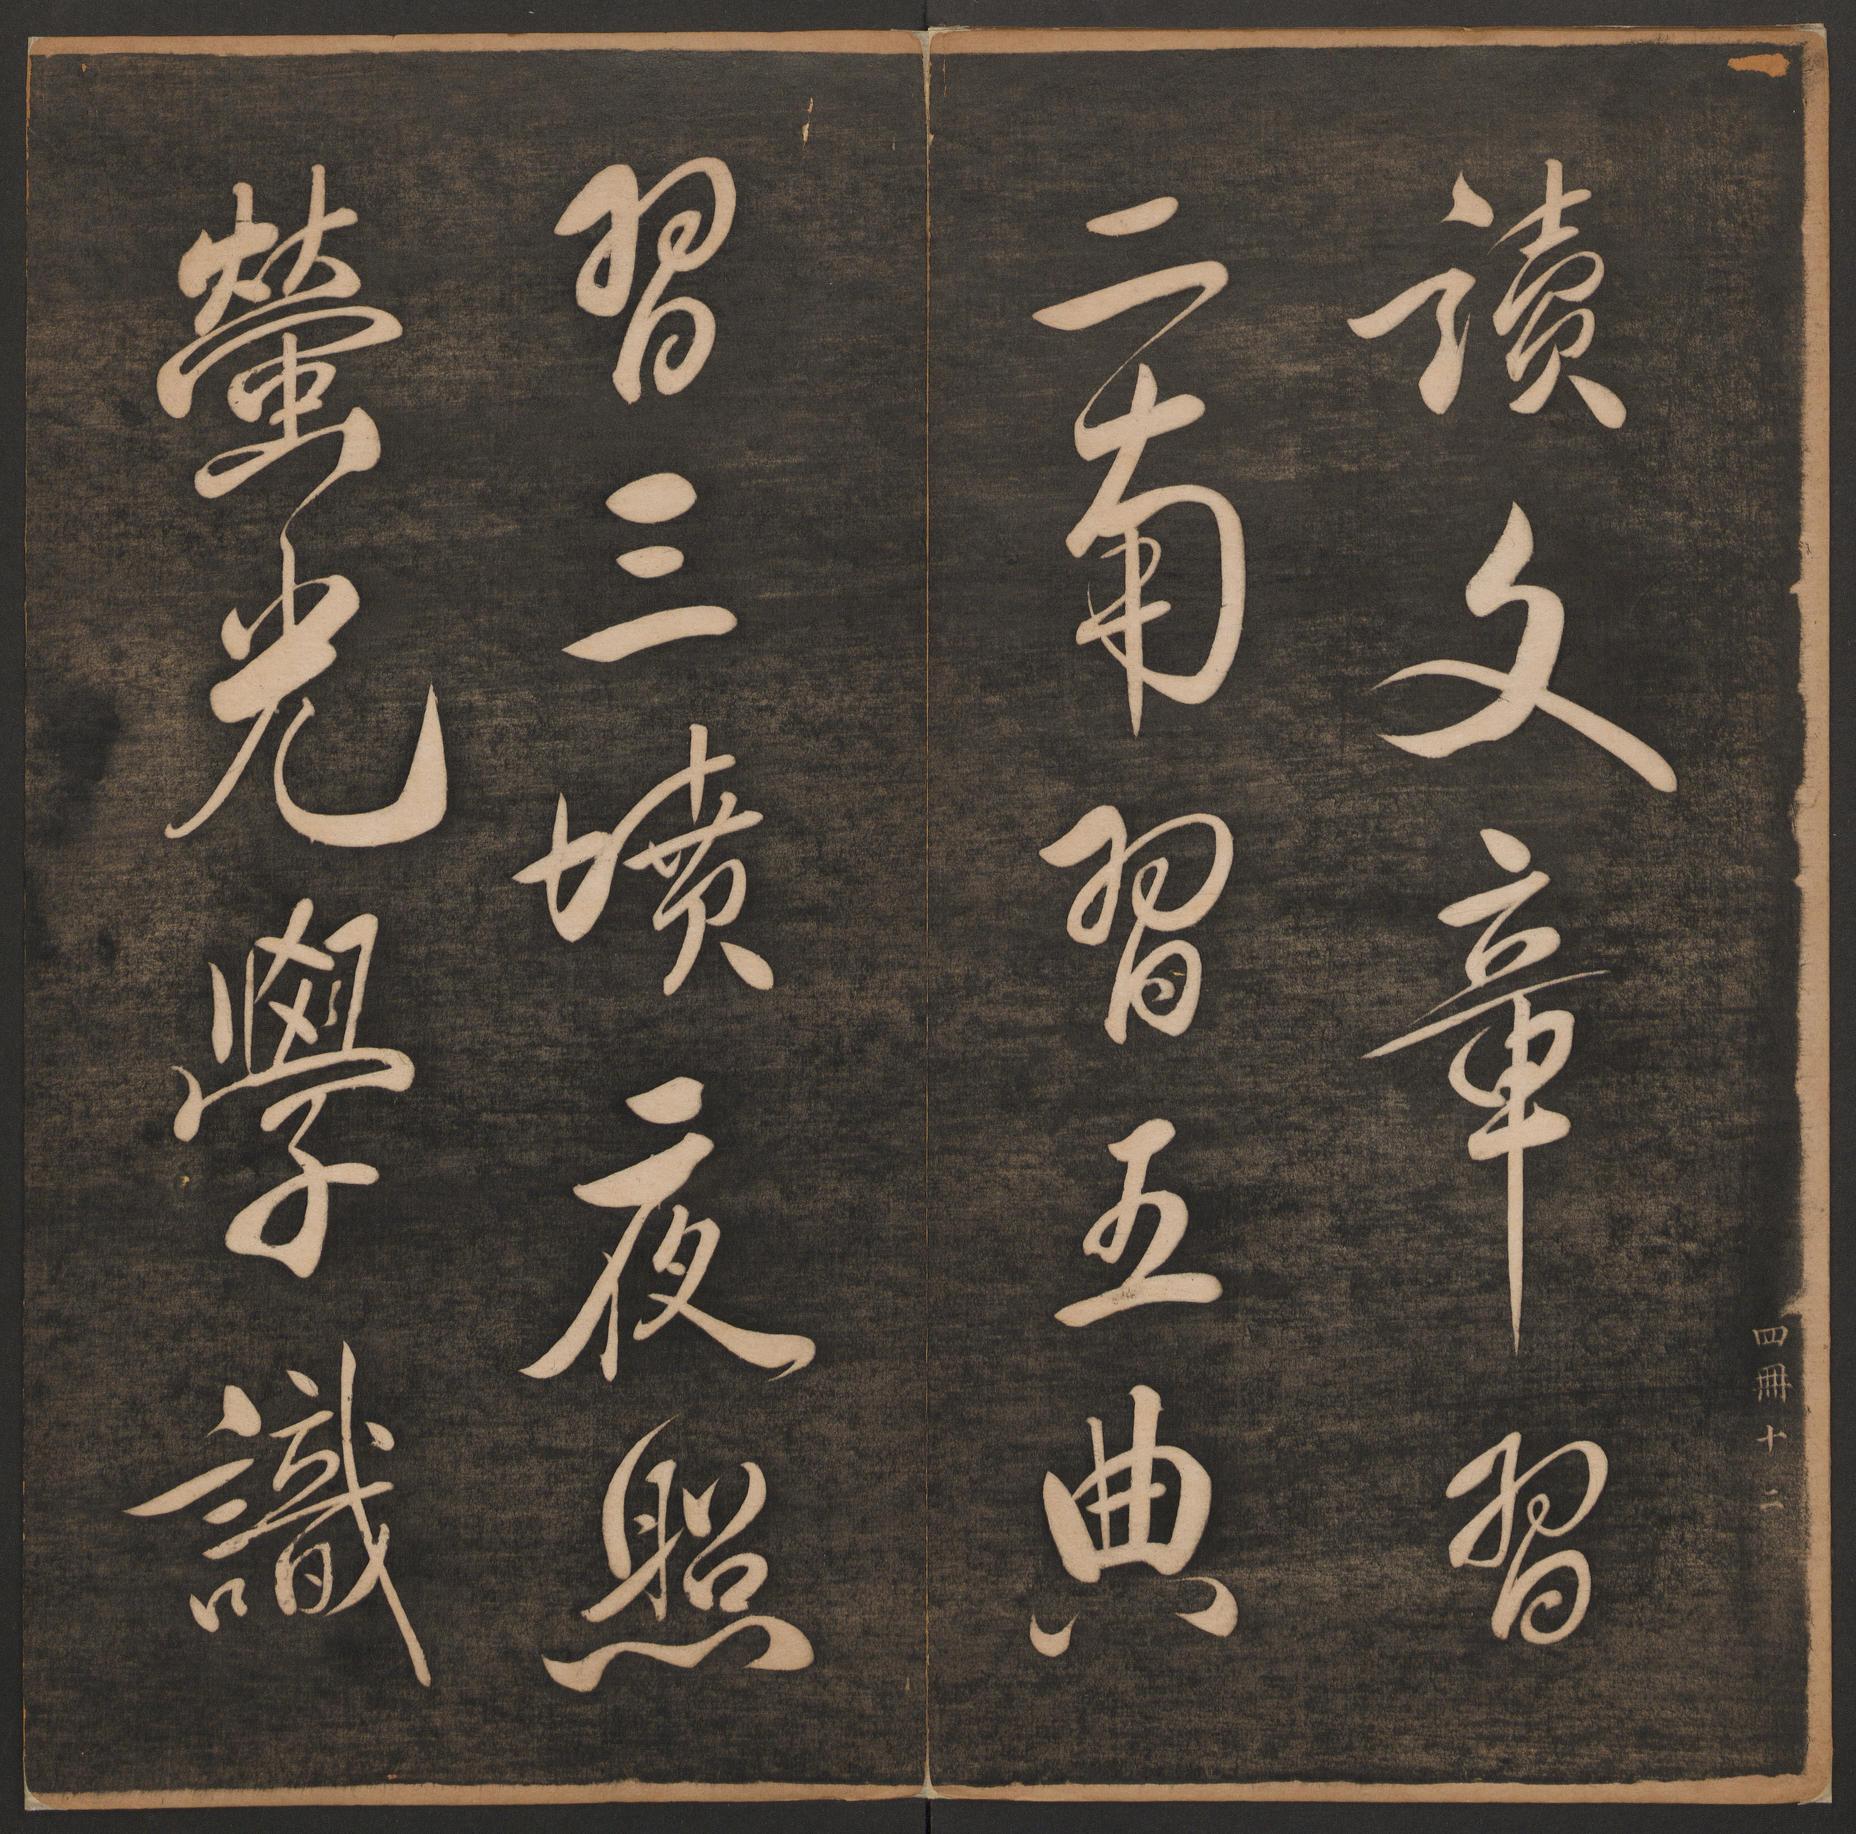 讀文章習
二南習五典
習三墳夜照
螢光學識
四冊十二